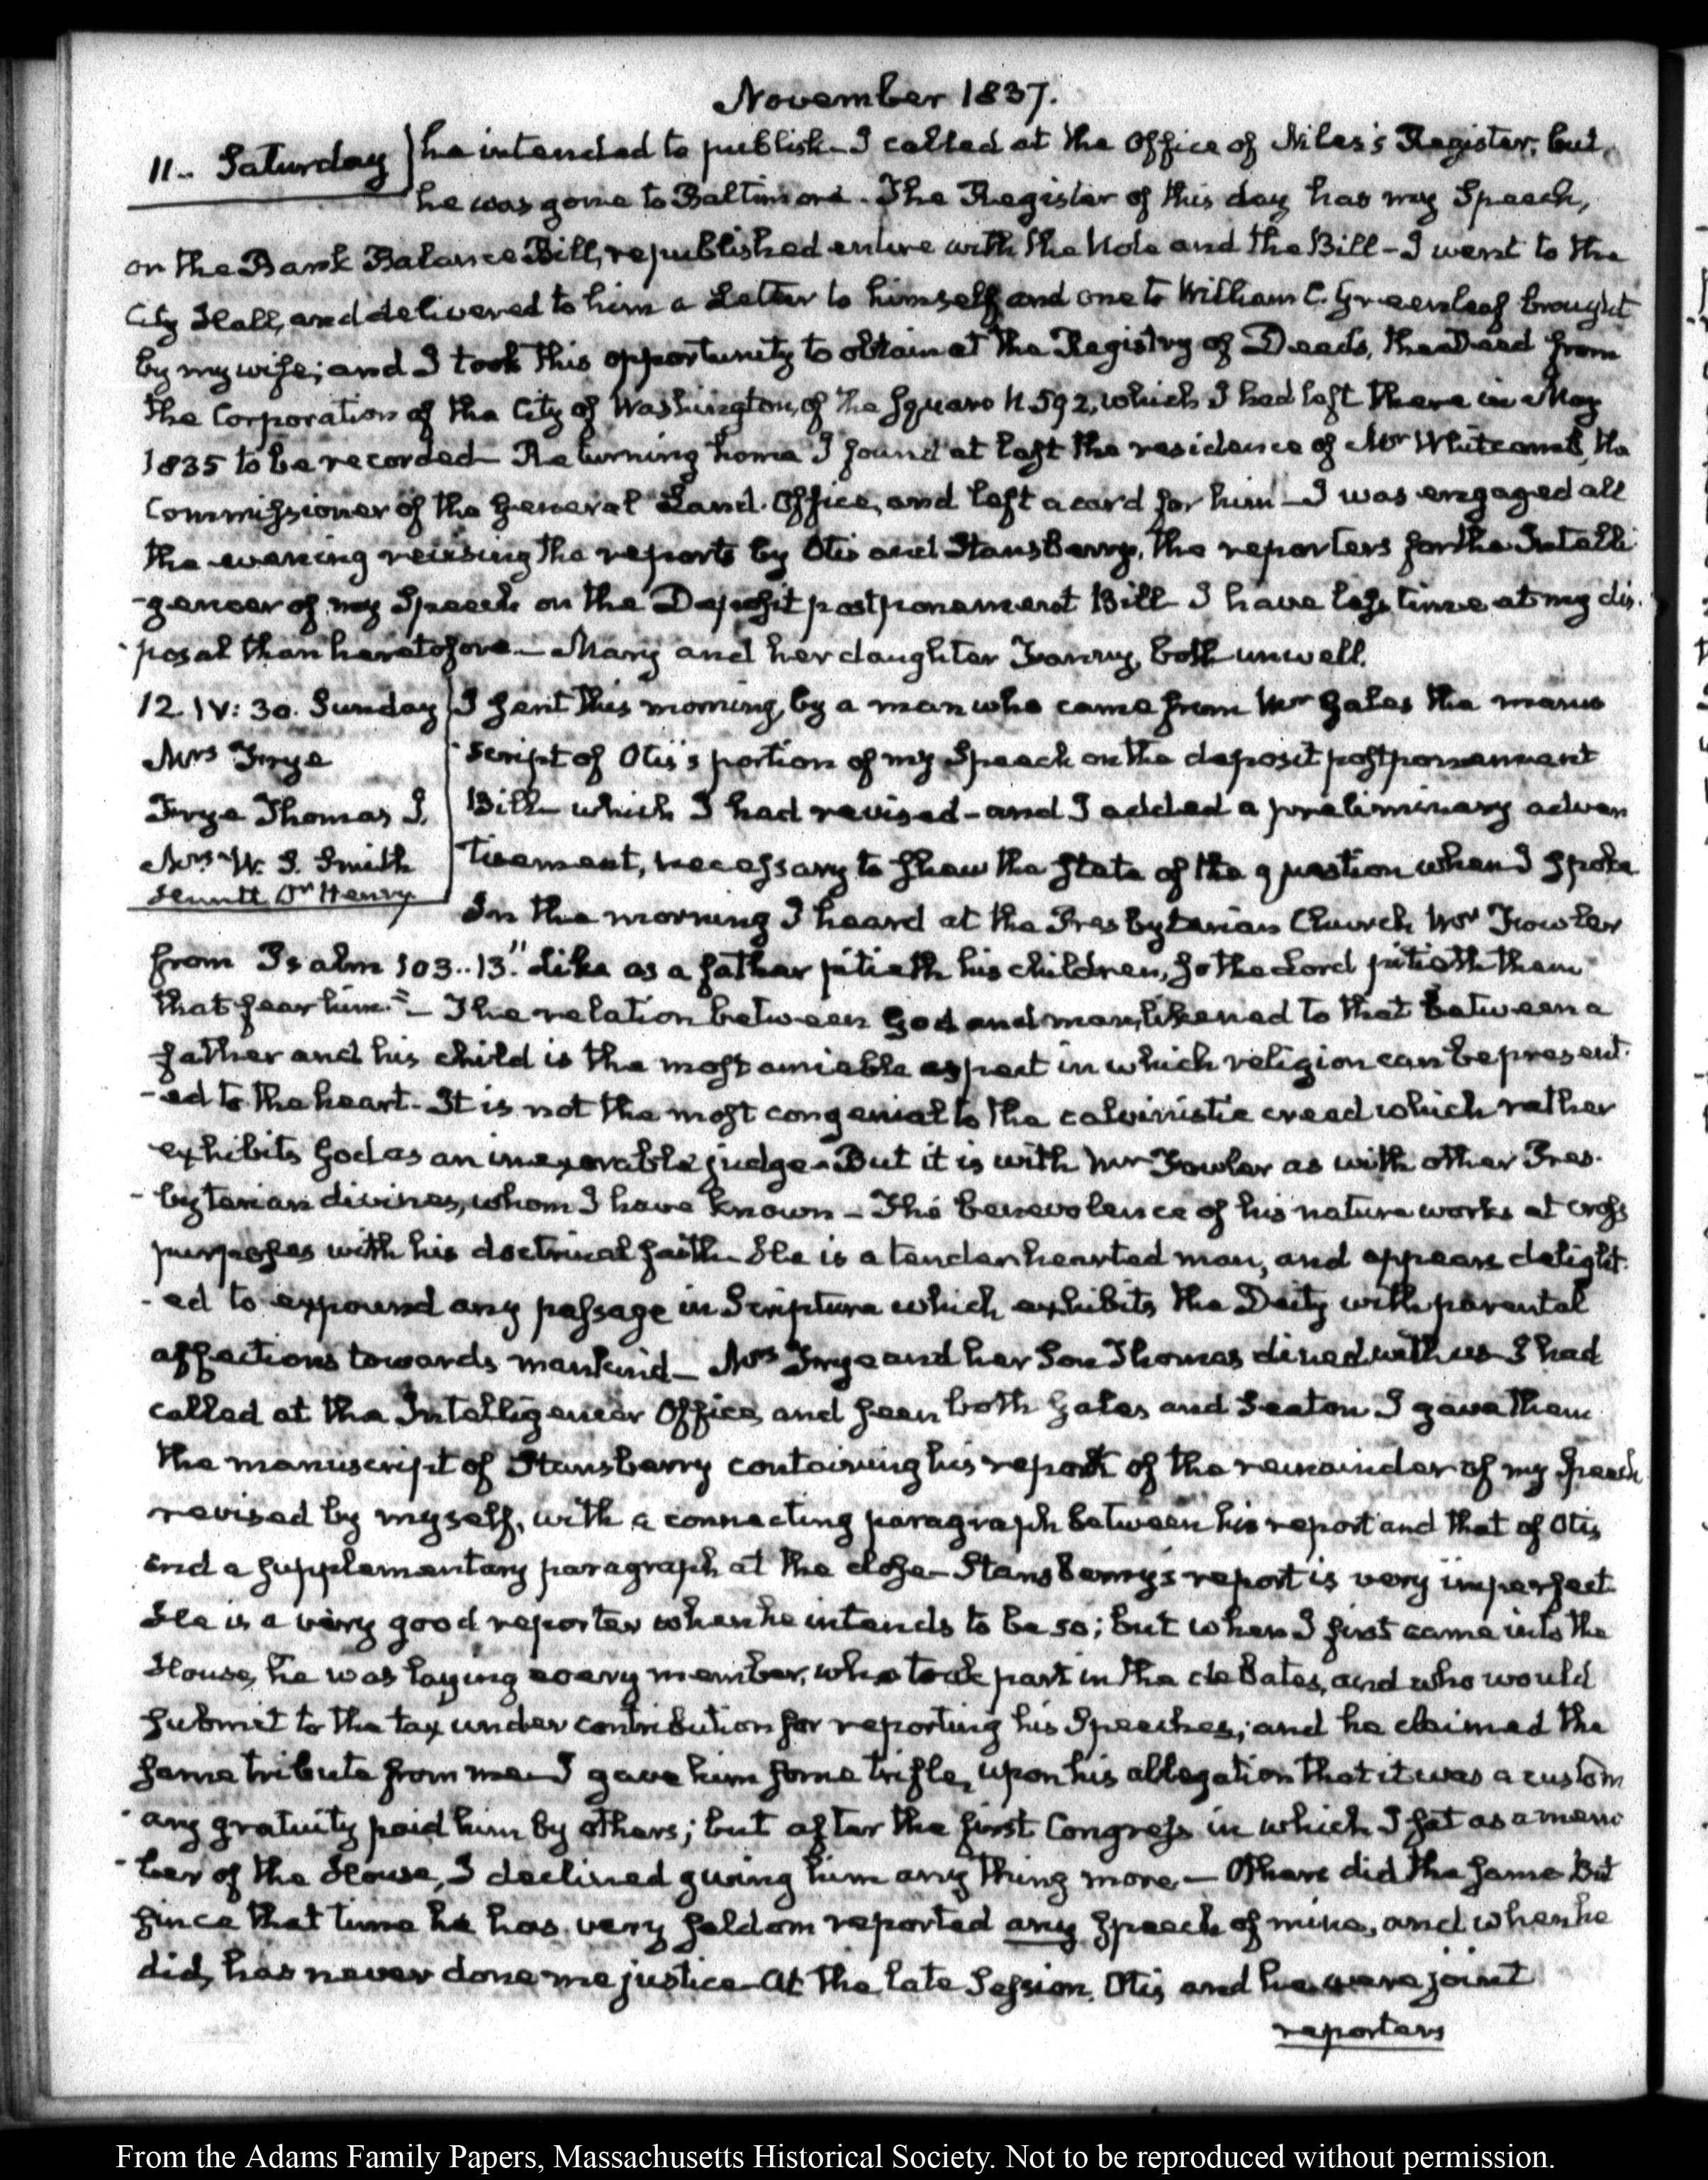 November 1837.
11.. Saturday } he intended to publish—I called at the Office of Niles's Register; but
he was gone to Baltimore. The Register of this day has my Speech,
on the Bank Balance Bill, republished entire with the Note and the Bill—I went to the
City Hall, and delivered to him a Letter to himself, and one to William C. Greenleaf brought
by my wife; and I took this opportunity to obtain at the Registry of Deeds, the Deed from
the Corporation of the City of Washington, of the Square N. 592, which I had left there in May
1835 to be recorded— Returning home I found at last the residence of Mr Whitcomb, the
Commissioner of the General Land-Office, and left a card for him—I was engaged all
the evening revising the reports by Otis and Stansberry, the reporters for the Intelli
-gencer of my Speech on the Deposit postponement Bill— I have less time at my dis-
-posal than heretofore—Mary and her daughter Fanny, both unwell.
12. IV: 30. Sunday
Mrs Frye
Frye Thomas J.
Mrs W. S. Smith
Hunt Dr Henry
I sent this morning, by a man who came from Mr Gales the manu
-script of Otis's portion of my Speech on the deposit postponement
Bill—which I had revised—and I added a preliminary adver
tisement, necessary to shew the state of the question when I spoke
In the morning I heard at the Presbyterian Church Mr Fowler
from Psalm 103..13. "Like as a father pitieth his children, so the Lord pitieth them
that fear him."— The relation between God and man, likened to that between a
father and his child is the most amiable aspect in which religion can be present-
-ed to the heart—It is not the most congenial to the calvinistic creed which rather
exhibits God as an inexorable judge—But it is with Mr Fowler as with other Pres-
-byterian divines, whom I have known—The benevolence of his nature works at cross
purposes with his doctrinal faith—He is a tender hearted man, and appears delight-
-ed to expound any passage in Scripture which exhibits the Deity with parental
affections towards mankind—Mrs Frye and her Son Thomas dined with us—I had
called at the Intelligencer Office, and seen both Gales and Seaton—I gave them
the manuscript of Stansberry containing his report of the remainder of my Speech
revised by myself, with a connecting paragraph between his report and that of Otis
and a supplementary paragraph at the close—Stansberry's report is very imperfect
He is a very good reporter when he intends to be so; but when I first came into the
House, he was laying every member, who took part in the debates, and who would
submit to the tax under contribution for reporting his Speeches; and he claimed the
same tribute from me—I gave him some trifle, upon his allegation that it was a custom
-ary gratuity paid him by others; but after the first Congress in which I sat as a mem
-ber of the House, I declined giving him any thing more—Others did the same But
since that time he has very seldom reported any Speech of mine, and when he
did, has never done me justice—At the late Session, Otis and he were joint
reporters
From the Adams Family Papers, Massachusetts Historical Society. Not to be reproduced without permission.